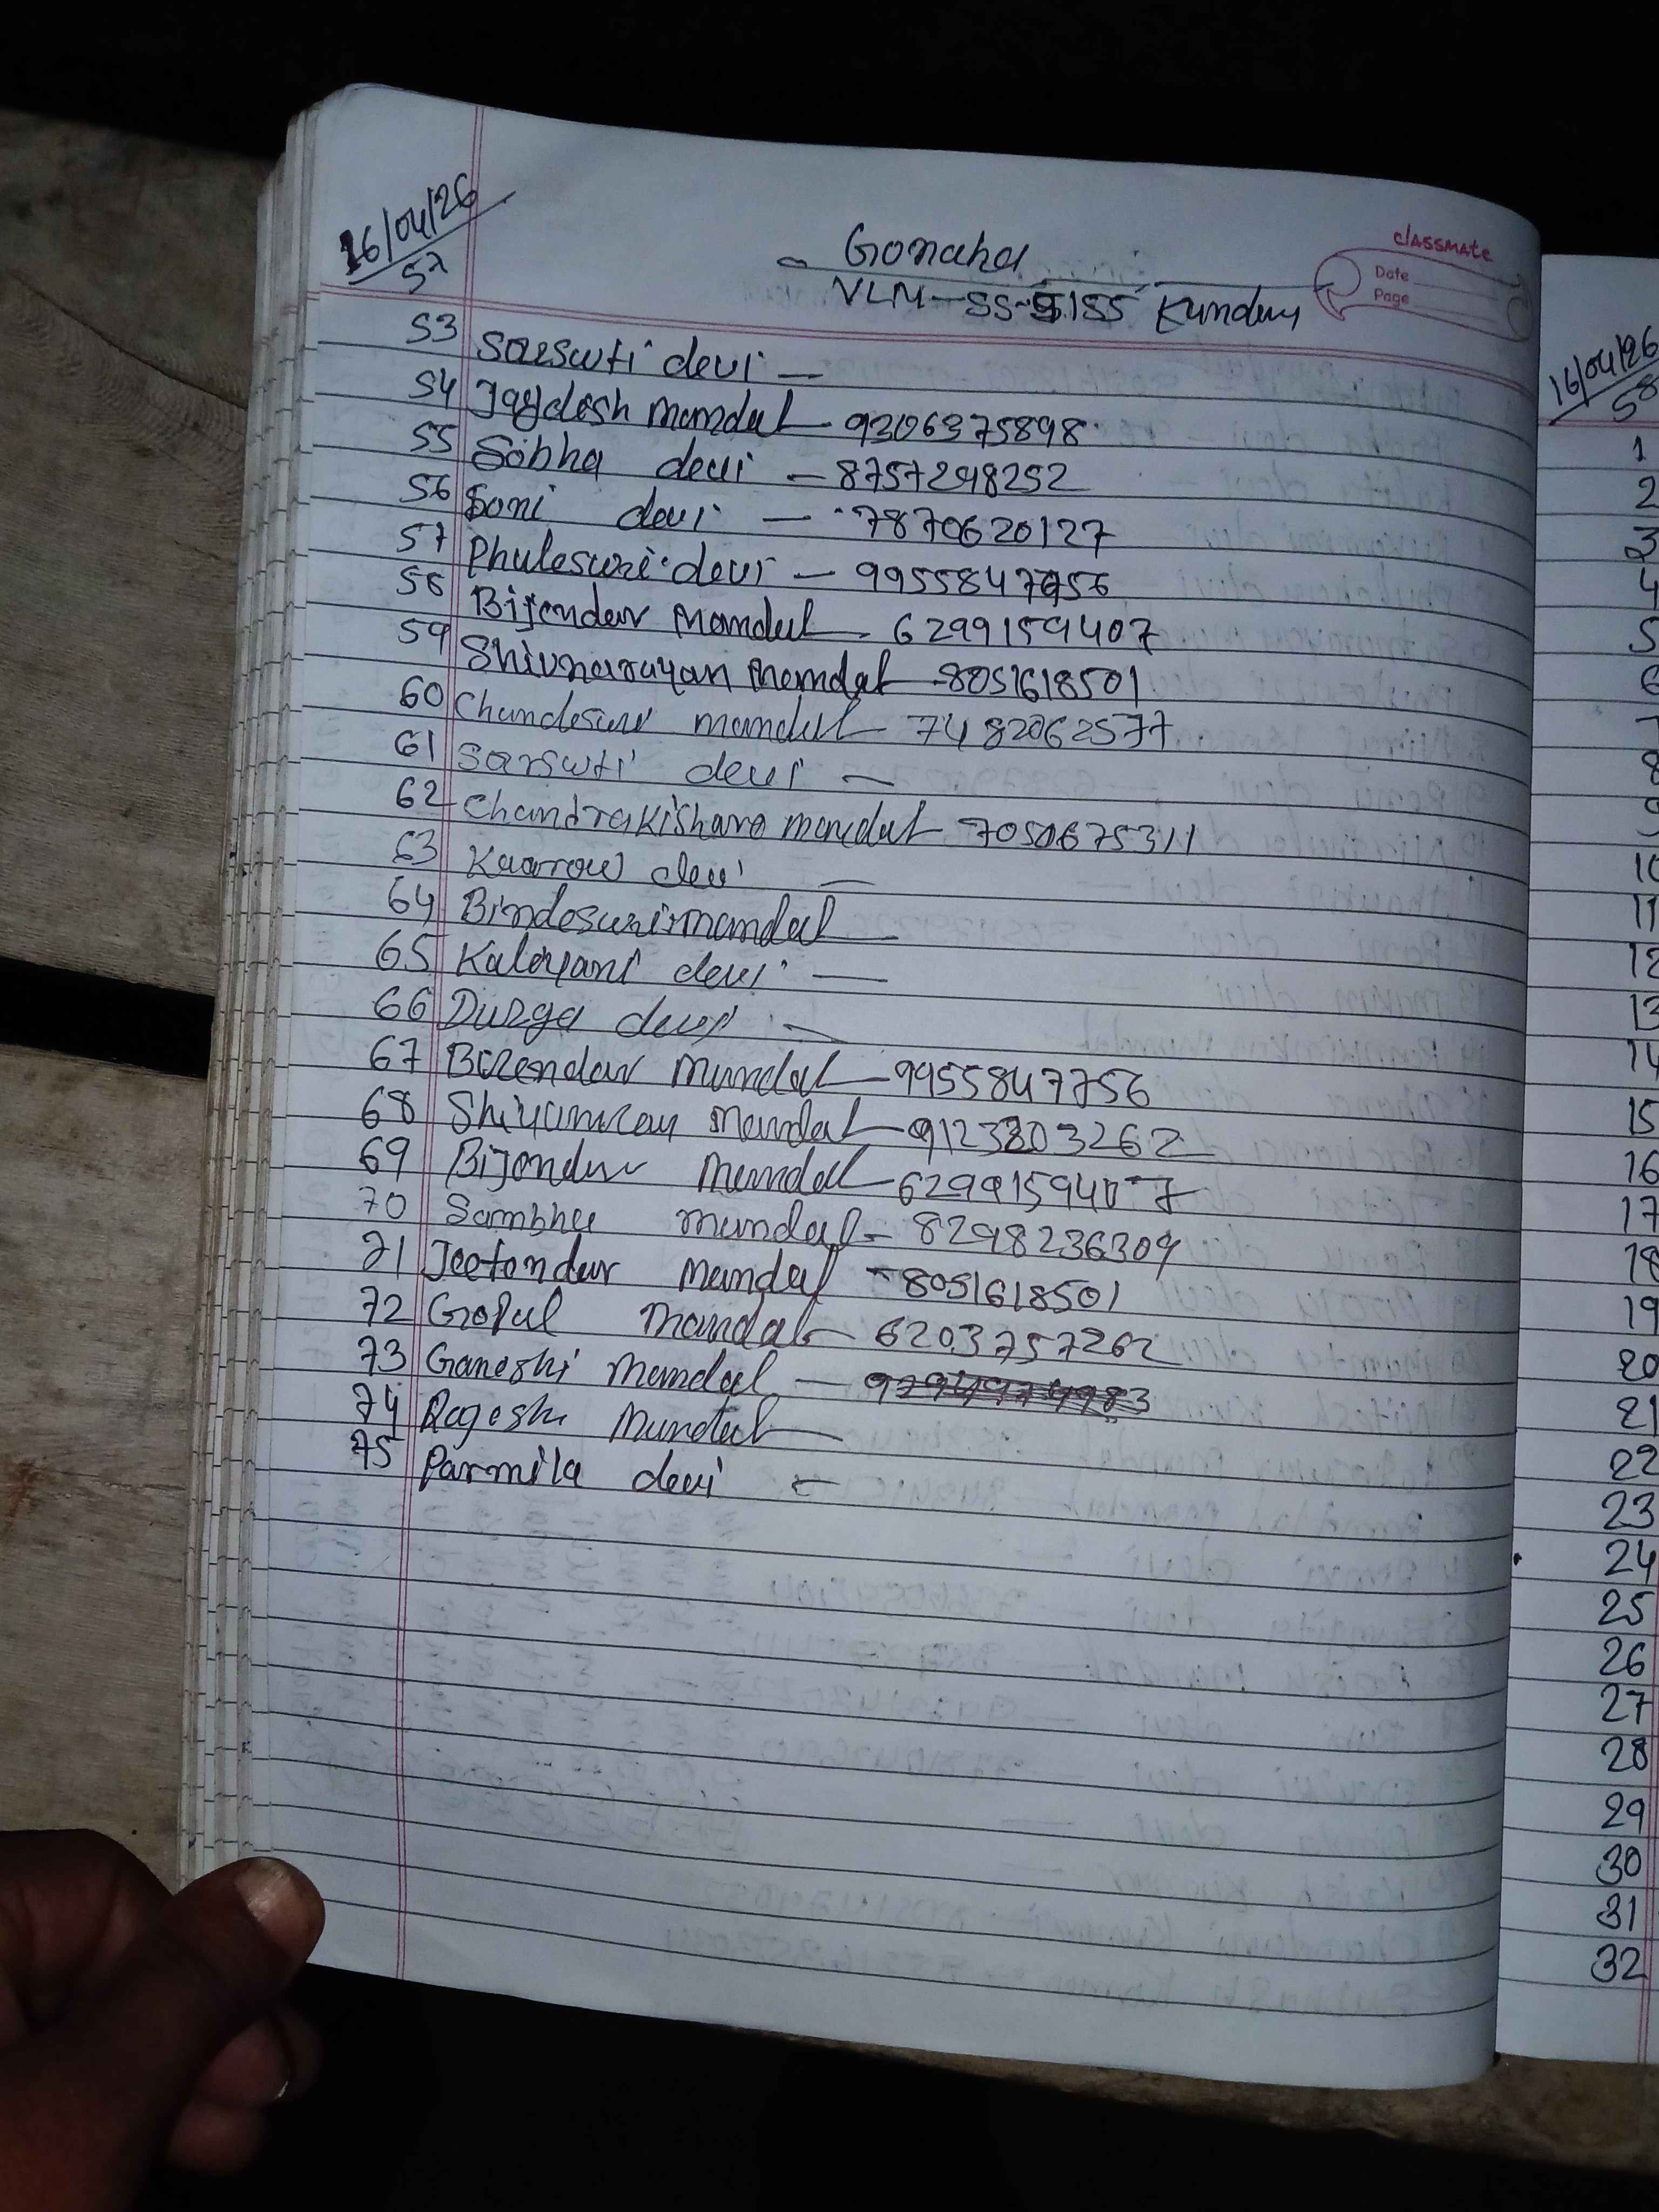 16/04/26
57
Gonaha
VLM-SS-5155 Kundan
classmate
Date
Page
53 Sarswti devi —
54 Jagdesh mandal - 9206375898
55 Sobha devi - 8757298252
56 Soni devi - 7870620127
57 Phuleswri devi - 9955847756
58 Bijendar Mandal - 6299159407
59 Shivnarayan Mandal - 8051618501
60 Chandeswr mandal - 7482062577
61 Sarswti devi —
62 Chandrakishare mandal - 7050675311
63 devi —
64 Bindeswri mandal —
65 Kaloyani devi —
66 Durga devi —
67 Birendar Mandal - 9955847756
68 Mandal - 9123203262
69 Bijendar Mandal - 6299159407
70 Sambhu mandal - 8298236309
71 Jeetendar Mandal - 8051618501
72 Gopal Mandal - 6203757262
73 Ganeshi Mandal —
74 Rageshi Mandal —
75 Parmila devi —
16/04/26
58
1
2
3
4
5
6
7
8
9
10
11
12
13
14
15
16
17
18
19
20
21
22
23
24
25
26
27
28
29
30
31
32